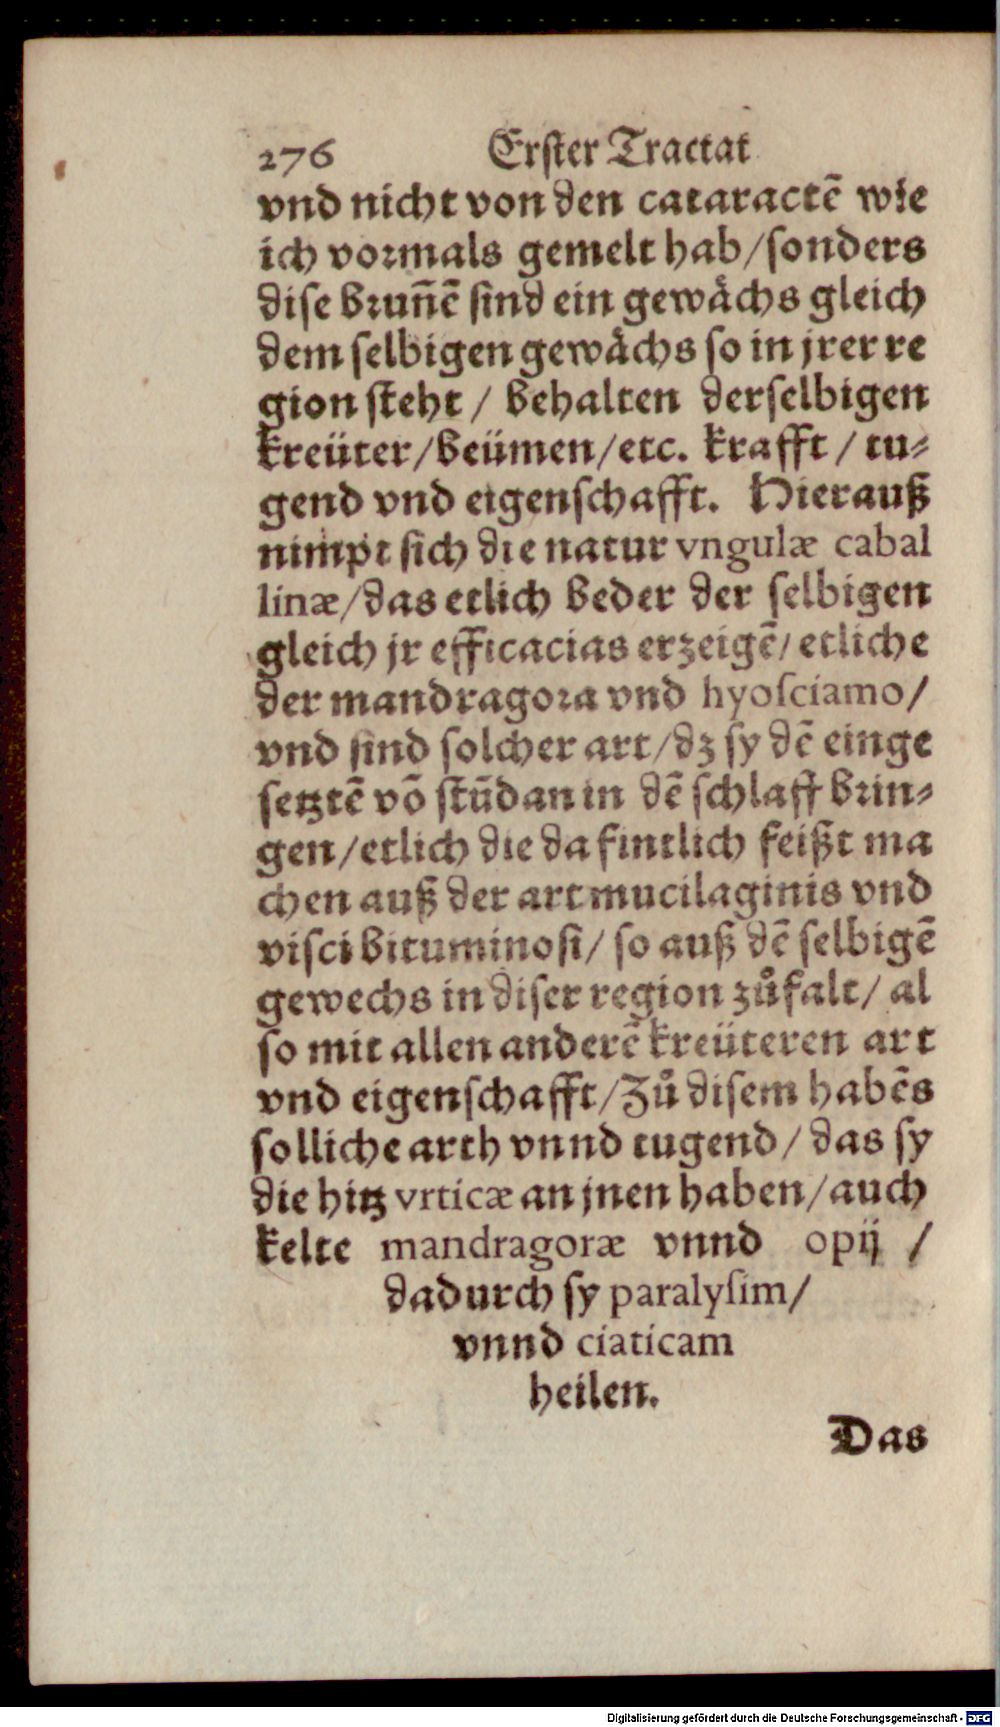 276 Erster Tractat
vnd nicht von den cataractẽ wie
ich vormals gemelt hab/sonders
dise brunñẽ sind ein gewächs gleich
dem selbigen gewächs so in jrer re
gion steht / behalten derselbigen
kreüter/beümen/etc. krafft / tu⸗
gend vnd eigenschafft. Hierauß
nimpt sich die natur vngulæ cabal
linæ/das etlich beder der selbigen
gleich jr efficacias erzeigẽ/etliche
der mandragora vnd hyosciamo/
vnd sind solcher art/dz sy dẽ einge
setztẽ võ stũdan in dẽ schlaff brin⸗
gen/etlich die da fintlich feißt ma
chen auß der art mucilaginis vnd
visci bituminosi/ so auß dẽ selbigẽ
gewechs in diser region zůfalt/ al
so mit allen anderẽ kreüteren art
vnd eigenschafft/Zů disem habẽs
solliche arth vnnd tugend/ das sy
die hitz vrticæ an jnen haben/auch
kelte mandragoræ vnnd opij /
dadurch sy paralysim/
vnnd ciaticam
heilen.
Das
Digitalisierung gefördert durch die Deutsche Forschungsgemeinschaft - DFG